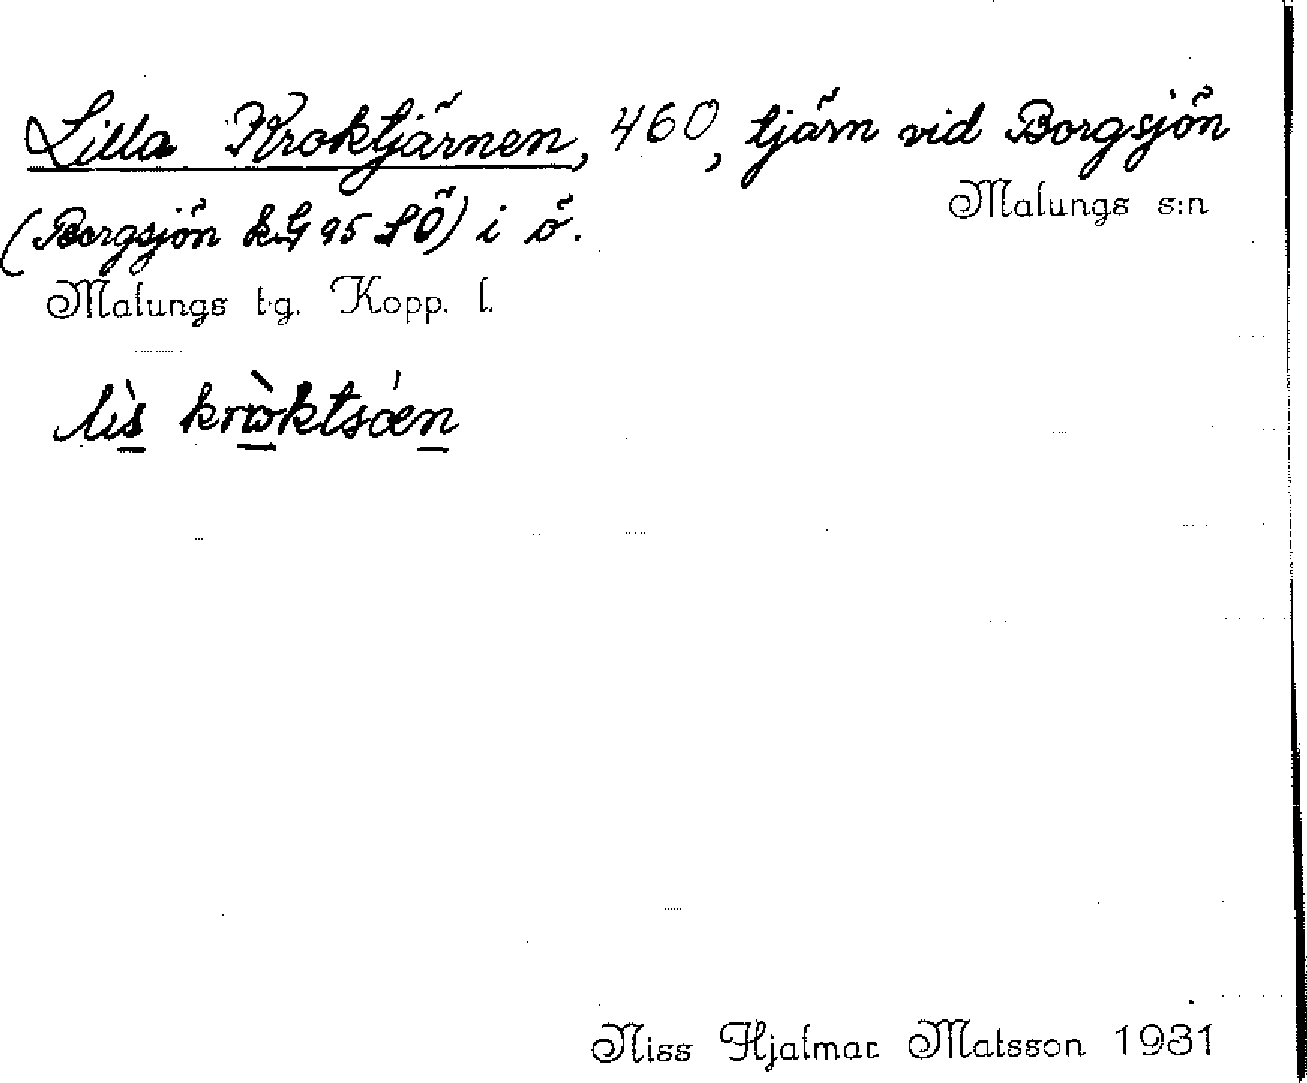 Lilla Kroktjärnen, 460, tjärn vid Borgsjön
Malungs s:n
(Borgsjön k.G 95 SÖ) i ö.
Malungs tg. Kopp. l.
lìs kròktsáen
Niss Hjalmar Matsson 1931